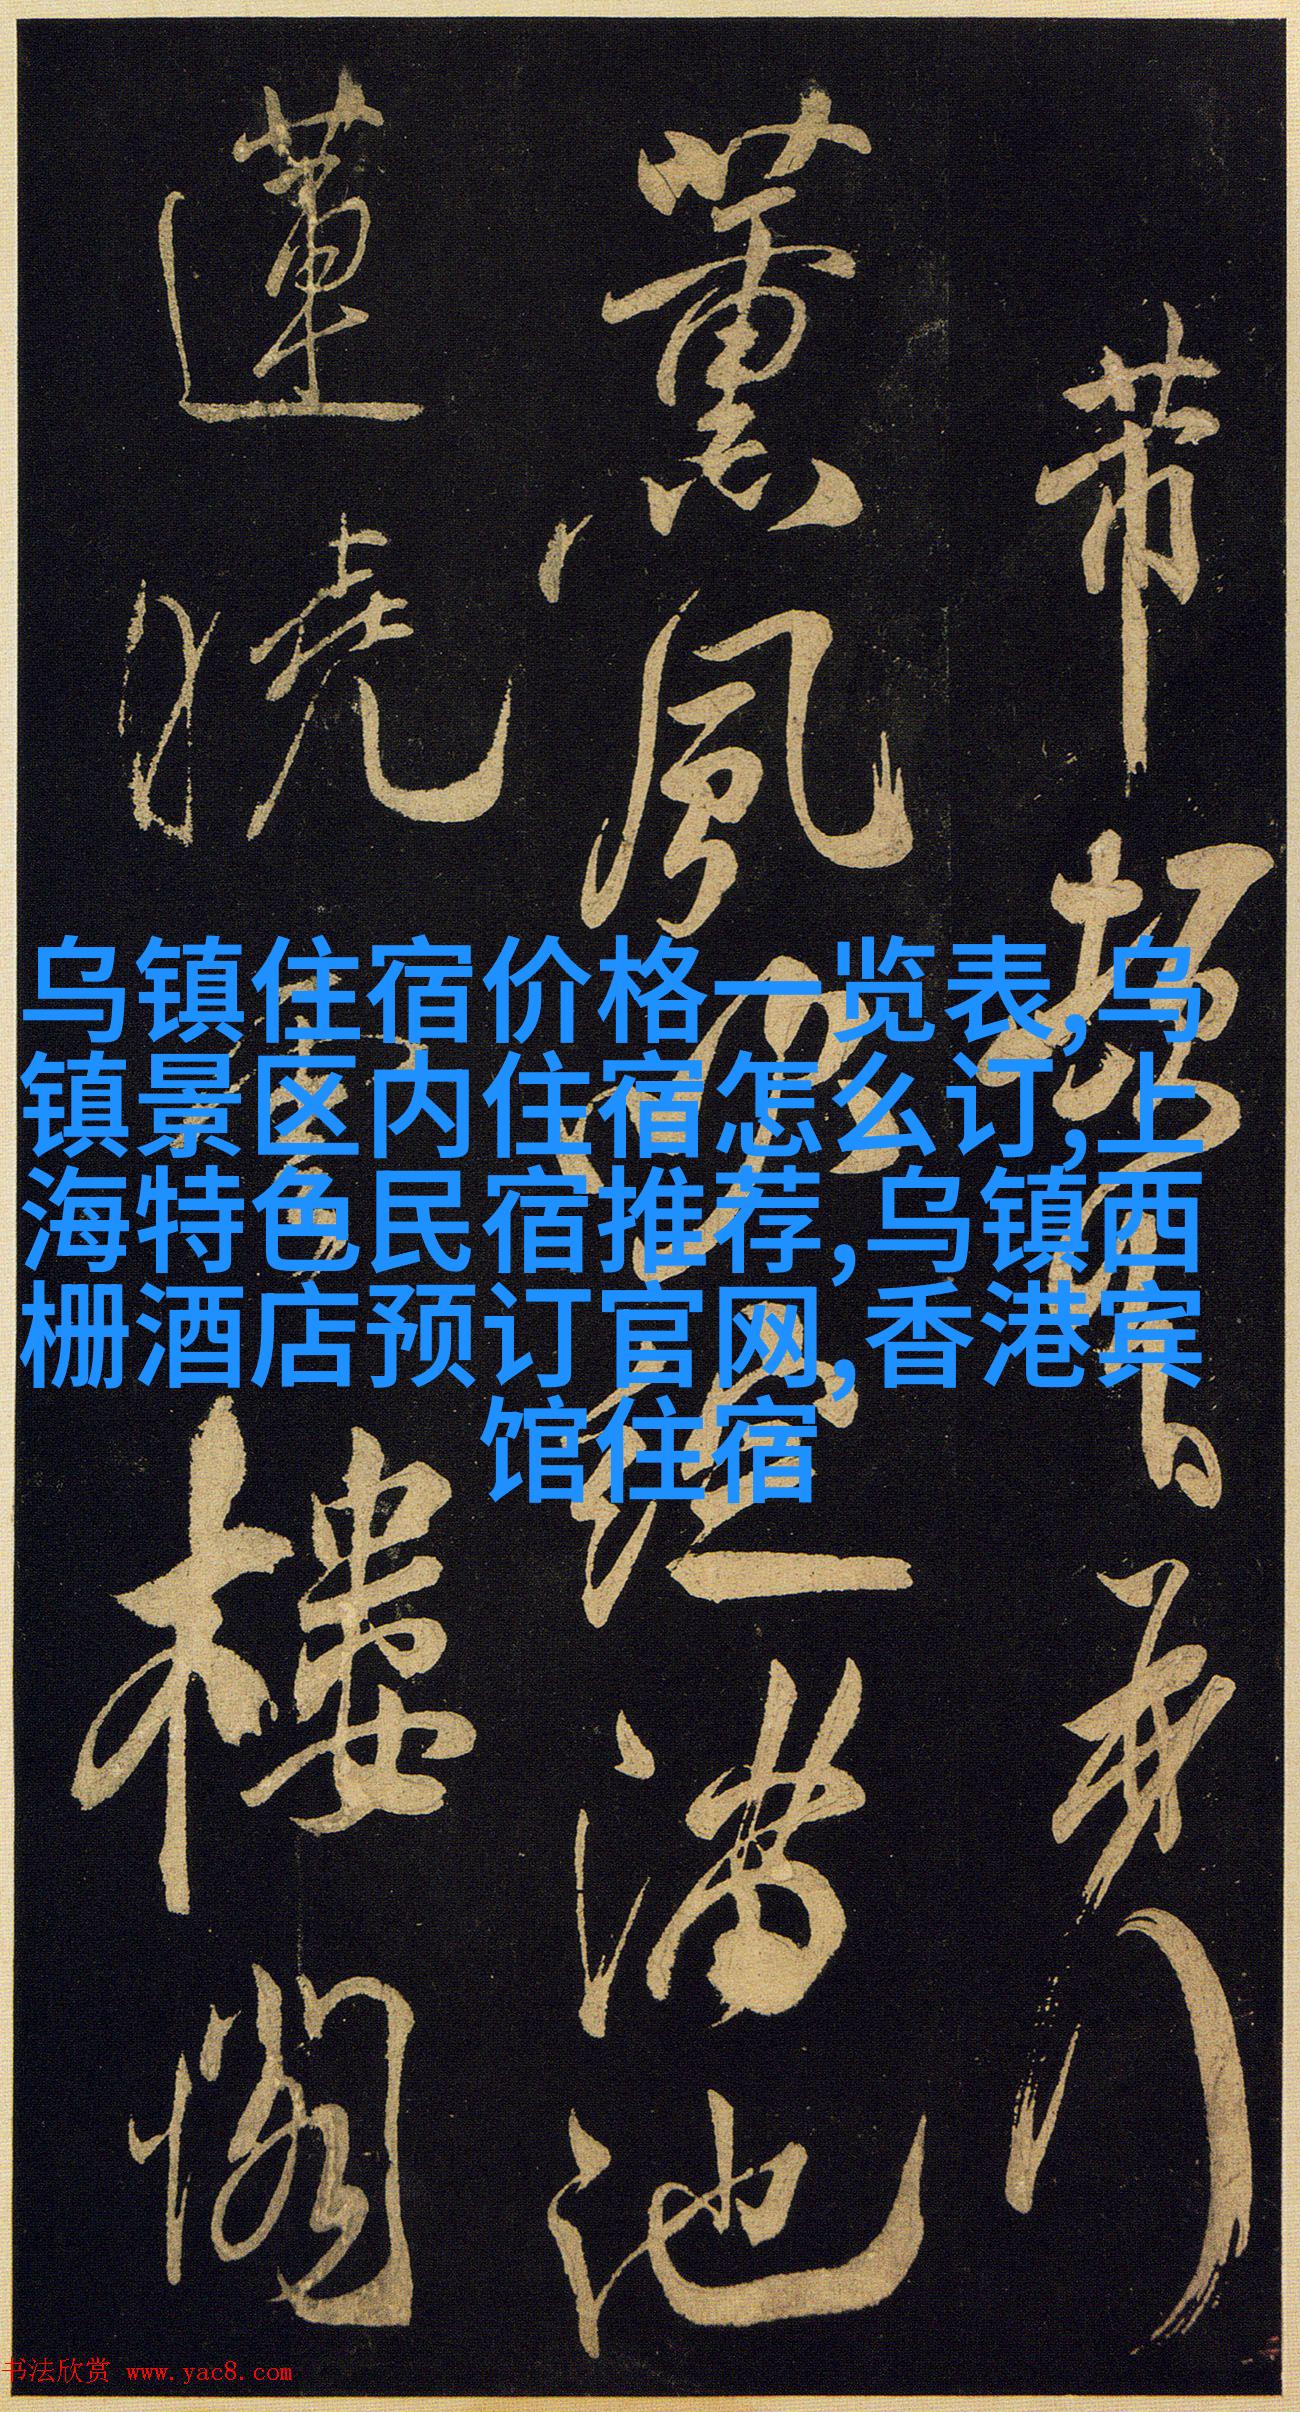 乌镇住宿价格一览表,乌
镇景区内住宿怎么订,上
海特色民宿推荐,乌镇西
栅酒店预订官网,香港宾
馆住宿
帶
薰風滿池
蓮曉樓閣
书法欣赏 www.yac8.com